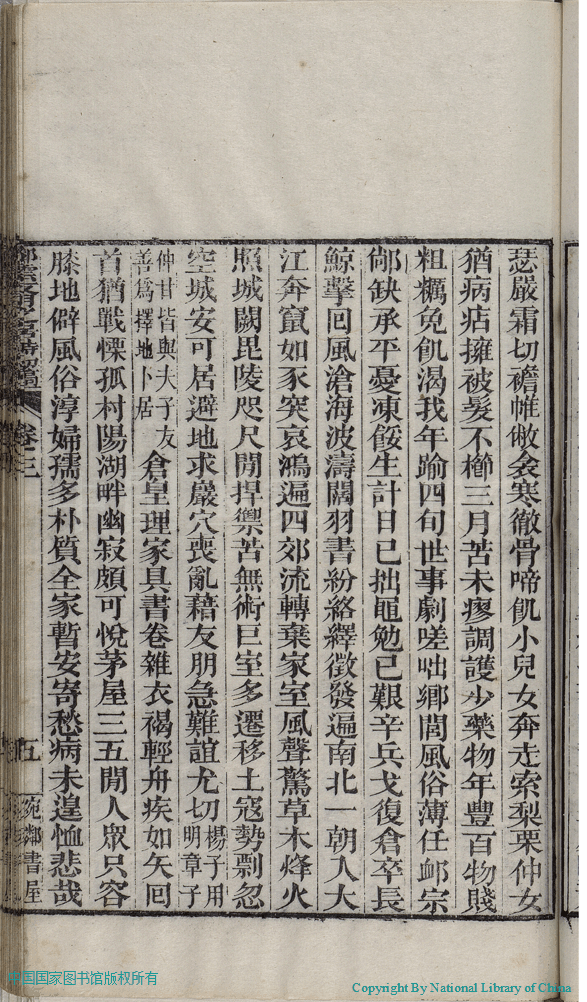 瑟嚴霜切襜帷敝衾寒徹骨啼飢小兒女奔走索梨栗仲女
猶病痁擁被髮不櫛三月苦未瘳調護少藥物年豐百物賤
粗糲免飢渴我年踰四旬世事劇嗟咄鄉閭風俗薄任卹宗
鄰缺承平憂凍餒生計日已拙黽勉已艱辛兵戈復倉卒長
鯨擊回風滄海波濤闊羽書紛絡繹徵發遍南北一朝入大
江奔竄如豕突哀鴻遍四郊流轉棄家室風聲驚草木烽火
照城闕毘陵咫尺閒捍禦苦無術巨室多遷移土寇勢剽忽
空城安可居避地求巖穴喪亂藉友朋急難誼尤切楊子用明章子
仲甘皆與夫子友善爲擇地卜居倉皇理家具書卷雜衣褐輕舟疾如矢回
首猶戰慄孤村陽湖畔幽寂頗可悅茅屋三五閒人眾只容
膝地僻風俗淳婦孺多朴質全家暫安寄愁病未遑恤悲哉
卷三
五
宛鄰書屋
中国国家图书馆版权所有
Copyright By National Library of China